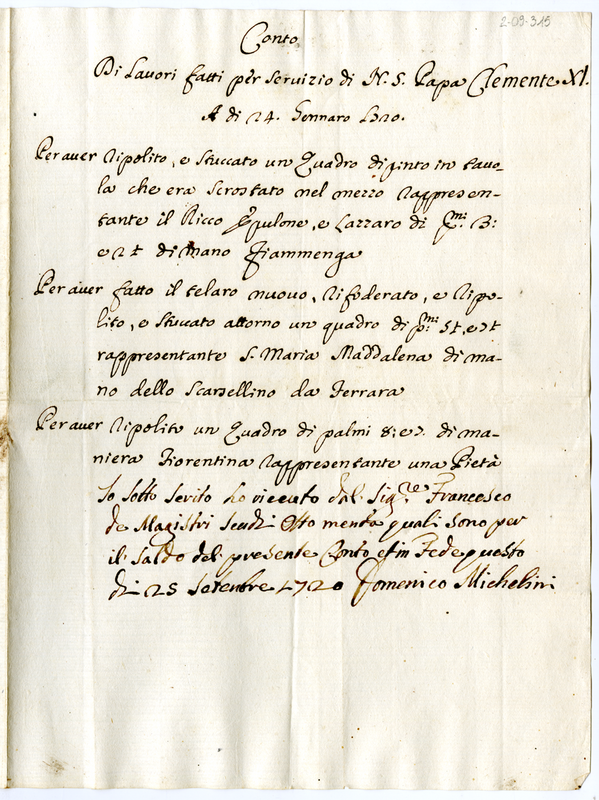 2-09-315
Conto
Di Lavori fatti per servizio di N. S. Papa Clemente XI.
A di 24. Gennaro 1720.
Per aver ripolito, e stuccato un Quadro dipinto in tavo-
la che era scrostato nel mezzo rappresen-
tante il Ricco Epulone, e Lazzaro di p.mi 3:
e 2 t di mano Fiammenga
Per aver fatto il telaro nuovo, rifoderato, e ripo-
lito, e stuccato attorno un quadro di p.mi 5 t, e
rappresentante S. Maria Maddalena di ma-
no dello Scarsellino da Ferrara
Per aver ripolito un Quadro di palmi 8: e 7. di ma-
niera Fiorentina rappresentante una Pietà
Io sotto scrito ho riceuto dal Sig.re Francesco
de Magistri scudi Otto monta quali sono per
il saldo del presente Conto et in Fede questo
di 25 setenbre 1720 Domenico Michelini